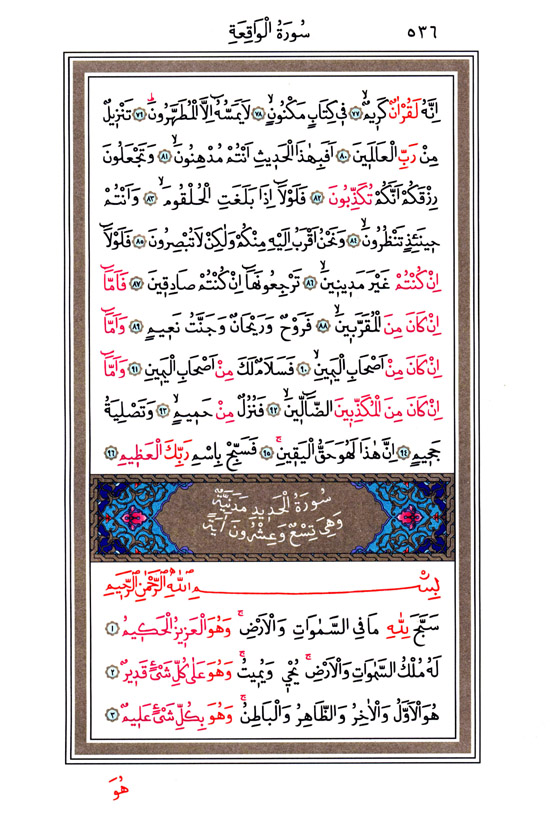 ٥٣٦ سُورَةُ الْوَاقِعَةِ
اِنَّهُ لَقُرْاٰنٌ كَرٖيمٌۙ ﴿٧٧﴾ فٖى كِتَابٍ مَكْنُونٍۙ ﴿٧٨﴾ لَا يَمَسُّهُٓ اِلَّا الْمُطَهَّرُونَۜ ﴿٧٩﴾ تَنْزٖيلٌ
مِنْ رَبِّ الْعَالَمٖينَ ﴿٨٠﴾ اَفَبِهٰذَا الْحَدٖيثِ اَنْتُمْ مُدْهِنُونَۙ ﴿٨١﴾ وَتَجْعَلُونَ
رِزْقَكُمْ اَنَّكُمْ تُكَذِّبُونَ ﴿٨٢﴾ فَلَوْلَٓا اِذَا بَلَغَتِ الْحُلْقُومَۙ ﴿٨٣﴾ وَاَنْتُمْ
حٖينَئِذٍ تَنْظُرُونَۙ ﴿٨٤﴾ وَنَحْنُ اَقْرَبُ اِلَيْهِ مِنْكُمْ وَلٰكِنْ لَا تُبْصِرُونَ ﴿٨٥﴾ فَلَوْلَٓا
اِنْ كُنْتُمْ غَيْرَ مَدٖينٖينَۙ ﴿٨٦﴾ تَرْجِعُونَهَٓا اِنْ كُنْتُمْ صَادِقٖينَ ﴿٨٧﴾ فَاَمَّٓا
اِنْ كَانَ مِنَ الْمُقَرَّبٖينَۙ ﴿٨٨﴾ فَرَوْحٌ وَرَيْحَانٌ وَجَنَّتُ نَعٖيمٍ ﴿٨٩﴾ وَاَمَّٓا
اِنْ كَانَ مِنْ اَصْحَابِ الْيَمٖينِۙ ﴿٩٠﴾ فَسَلَامٌ لَكَ مِنْ اَصْحَابِ الْيَمٖينِ ﴿٩١﴾ وَاَمَّٓا
اِنْ كَانَ مِنَ الْمُكَذِّبٖينَ الضَّٓالّٖينَۙ ﴿٩٢﴾ فَنُزُلٌ مِنْ حَمٖيمٍۙ ﴿٩٣﴾ وَتَصْلِيَةُ
جَحٖيمٍ ﴿٩٤﴾ اِنَّ هٰذَا لَهُوَ حَقُّ الْيَقٖينِۚ ﴿٩٥﴾ فَسَبِّحْ بِاسْمِ رَبِّكَ الْعَظٖيمِ ﴿٩٦﴾
سُورَةُ الْحَدٖيدِ مَدَنِيَّةٌ
وَهِىَ تِسْعٌ وَعِشْرُونَ اٰيَةً
بِسْمِ اللّٰهِ الرَّحْمٰنِ الرَّحٖيمِ
سَبَّحَ لِلّٰهِ مَا فِى السَّمٰوَاتِ وَالْاَرْضِۚ وَهُوَ الْعَزٖيزُ الْحَكٖيمُ ﴿١﴾
لَهُ مُلْكُ السَّمٰوَاتِ وَالْاَرْضِۚ يُحْيٖ وَيُمٖيتُۚ وَهُوَ عَلٰى كُلِّ شَىْءٍ قَدٖيرٌ ﴿٢﴾
هُوَ الْاَوَّلُ وَالْاٰخِرُ وَالظَّاهِرُ وَالْبَاطِنُۚ وَهُوَ بِكُلِّ شَىْءٍ عَلٖيمٌ ﴿٣﴾
هُوَ